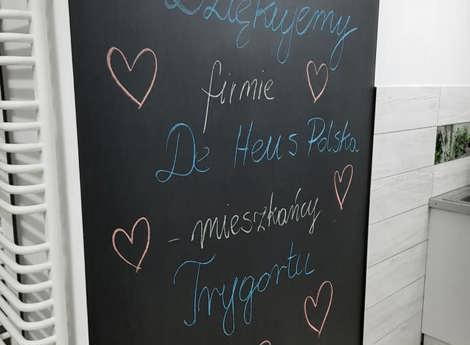 Dziękujemy
firmie
De Heus Polska
- mieszkańcy
Trygortu